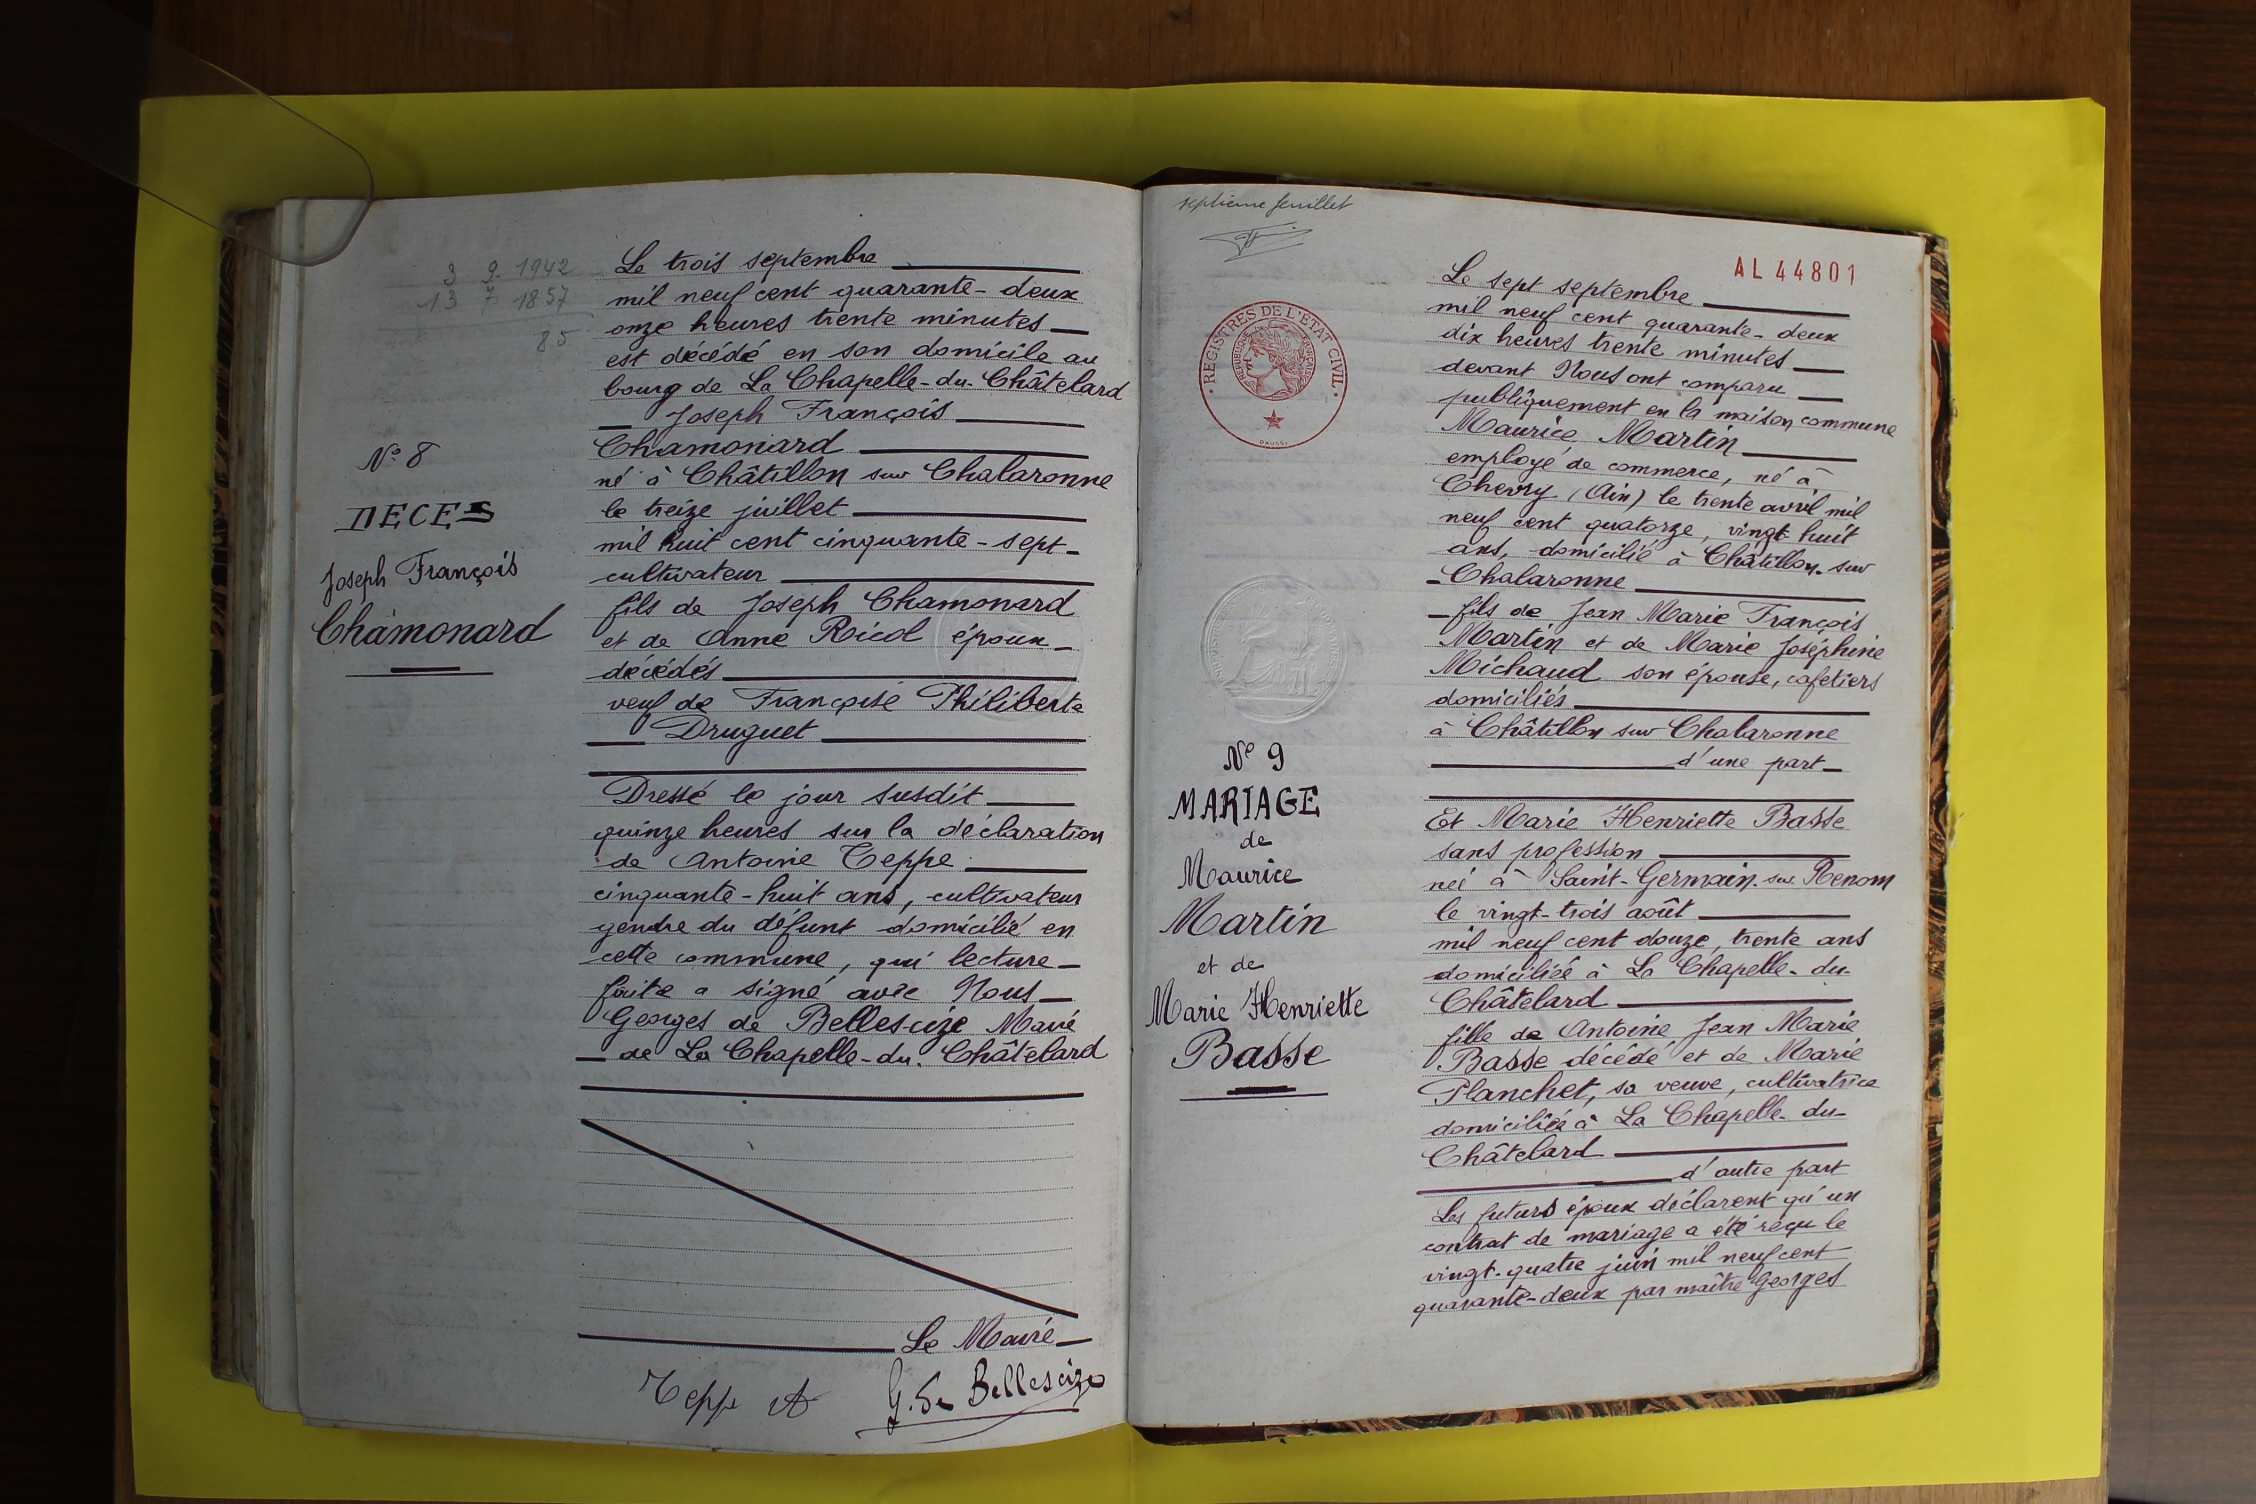 3 9 1942
13 7 1857
85
N° 8
DECES
Joseph François
Chamonard
Le trois septembre
mil neuf cent quarante-deux
onze heures trente minutes
est décédé en son domicile au
bourg de La Chapelle-du-Châtelard
Joseph François
Chamonard
né à Châtillon sur Chalaronne
le treize juillet
mil huit cent cinquante-sept-
cultivateur
fils de Joseph Chamonard
et de Anne Ricol époux-
décédés
veuf de Françoise Philiberte
Druguet
Dressé le jour susdit
quinze heures sur la déclaration
de Antoine Teppe
cinquante-huit ans, cultivateur
gendre du défunt domicilié en
cette commune, qui lecture
faite a signé avec Nous
Georges de Bellescize Maire
de La Chapelle-du-Châtelard
Le Maire
Teppe A
G. de Bellescize
septième feuillet
AL 44801
REGISTRES DE L'ETAT CIVIL
N° 9
MARIAGE
de
Maurice
Martin
et de
Marie Henriette
Basse
Le sept septembre
mil neuf cent quarante-deux
dix heures trente minutes
devant Nous ont comparu
publiquement en la maison commune
Maurice Martin
employé de commerce, né à
Chevry (Ain) le trente avril mil
neuf cent quatorze, vingt-huit
ans, domicilié à Châtillon-sur
-Chalaronne
fils de Jean Marie François
Martin et de Marie Joséphine
Michaud son épouse, cafetiers
domiciliés
à Châtillon sur Chalaronne
d'une part
Et Marie Henriette Basse
sans profession
née à Saint-Germain-sur Renom
le vingt-trois août
mil neuf cent douze, trente ans
domiciliée à La Chapelle-du-
Châtelard
fille de Antoine Jean Marie
Basse décédé et de Marie
Planchet, sa veuve, cultivatrice
domiciliée à La Chapelle-du-
Châtelard
d'autre part
Les futurs époux déclarent qu'un
contrat de mariage a été reçu le
vingt-quatre juin mil neuf cent
quarante-deux par maître Georges